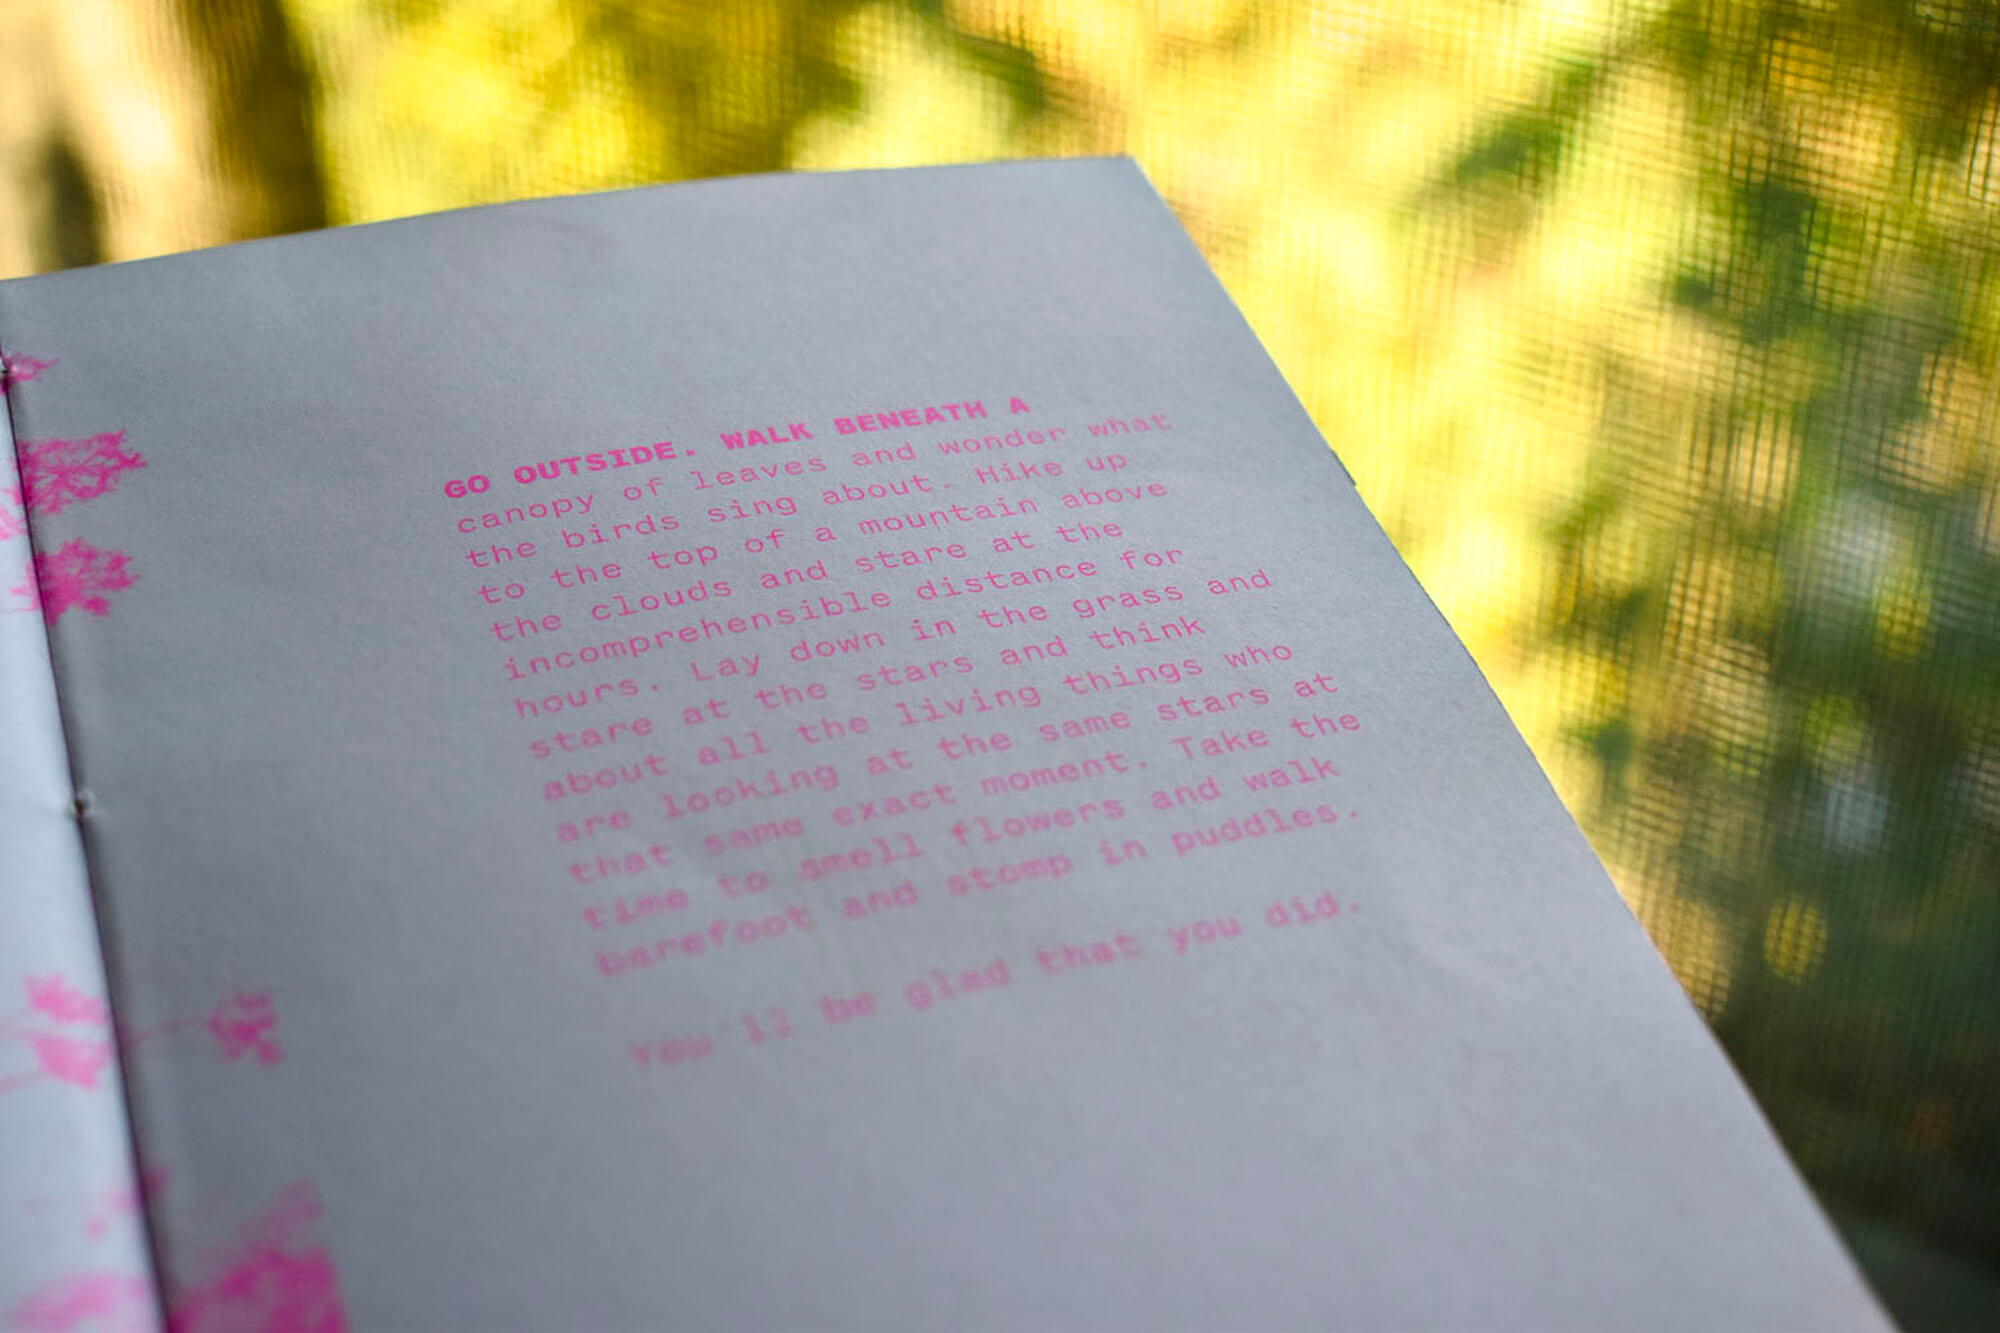 GO OUTSIDE. WALK BENEATH A
canopy of leaves and wonder what
the birds sing about. Hike up
to the top of a mountain above
the clouds and stare at the
incomprehensible distance for
hours. Lay down in the grass and
stare at the stars and think
about all the living things who
are looking at the same stars at
that same exact moment. Take the
time to smell flowers and walk
barefoot and stomp in puddles.
You'll be glad that you did.